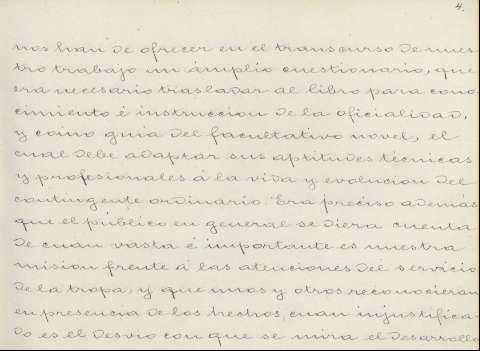 4.
nos han de ofrecer en el transcurso de nues
tro trabajo un ámplio cuestionario, que
era necesario trasladar al libro para cono-
cimiento é instruccion de la oficialidad,
y como guia del facultativo novel, el
cual debe adaptar sus aptitudes técnicas
y profesionales á la vida y evolucion del
contingente ordinario. Era preciso ademas
que el público en general se diera cuenta
de cuan vasta é importante es nuestra
mision frente á las atenciones del servicio
de la tropa; y que unos y otros reconocieran
en presencia de los hechos, cuan injustifica-
do es el desvio con que se mira el desarrollo